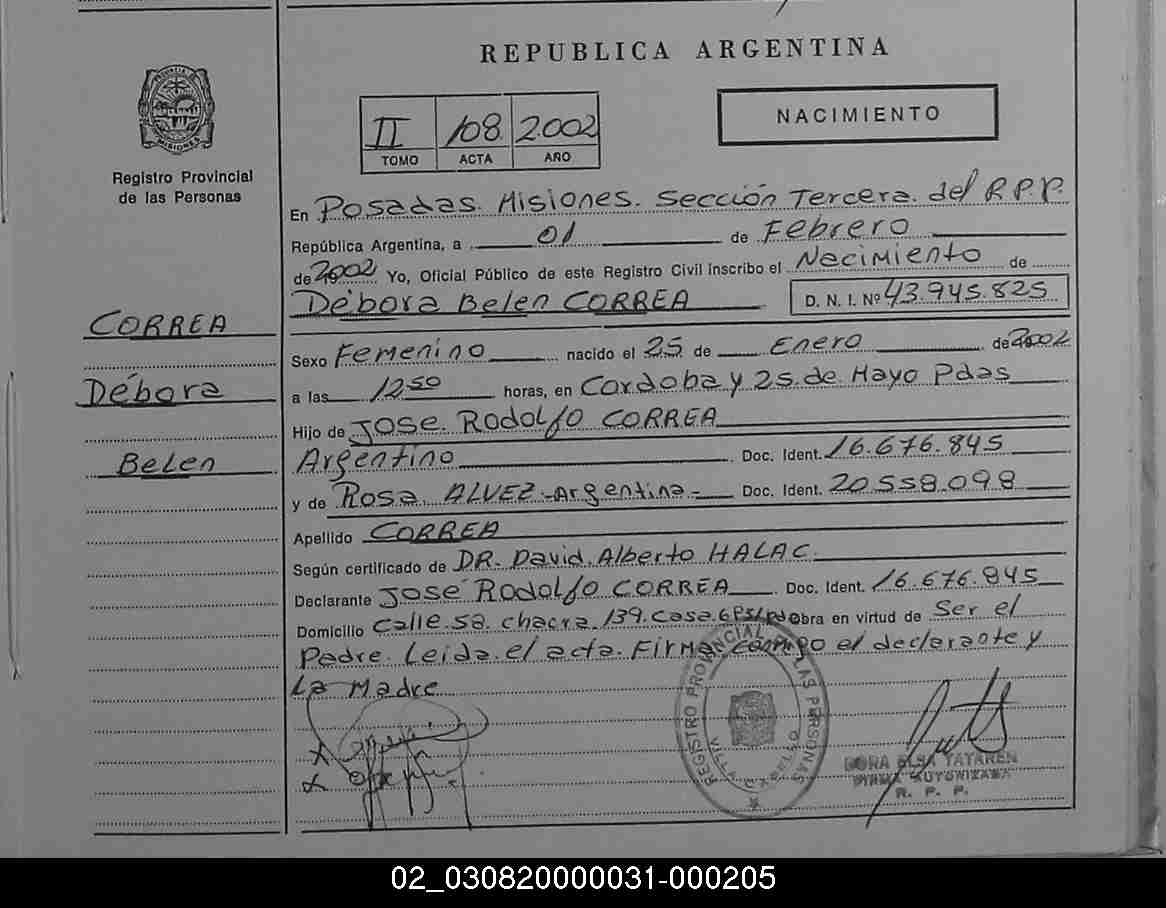 REPUBLICA ARGENTINA
PROVINCIA DE
MISIONES
Registro Provincial
de las Personas
II 108 2.002
TOMO ACTA AÑO
NACIMIENTO
En Posadas. Misiones. Sección Tercera. del R.P.P.
República Argentina, a 01 de Febrero
de 2002 Yo, Oficial Público de este Registro Civil inscribo el Nacimiento de
Débora Belen CORREA D. N. I. Nº 43.945.825
CORREA
Sexo Femenino nacido el 25 de Enero de 2002
Débora
a las 12 50 horas, en Cordoba y 25 de Mayo Pdas
Hijo de JOSE. Rodolfo CORREA
Belen
Argentino Doc. Ident. 16.676.845
y de Rosa ALVEZ - Argentina - Doc. Ident. 20558.098
Apellido CORREA
Según certificado de DR. David. Alberto HALAC.
Declarante JOSÉ Rodolfo CORREA Doc. Ident. 16.676.845
Domicilio Calle. 58. chacra. 139. Casa 6 Obra en virtud de Ser el
Padre. Leida. el acta. Firma conmigo el declarante y
La Madre
REGISTRO PROVINCIAL LAS PERSONAS
VILLA CABELLO
DORA ELSA TATAREN
FIRMA AUTORIZADA
R. P. P.
02_030820000031-000205